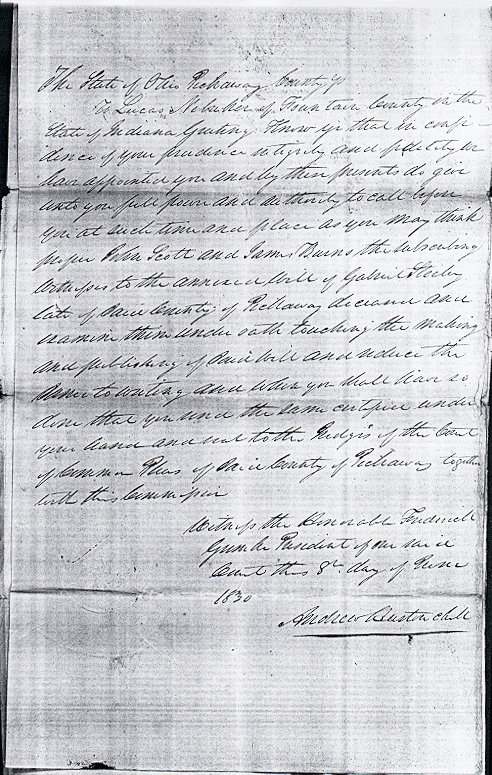 The State of Ohio Pickaway County ss
To Lucas Nebeker of Fountain County in the
State of Indiana Greeting Know ye that in confi-
dence of your prudence integrity and fidelity we
have appointed you and by these presents do give
unto you full power and authority to call before
you at such time and place as you may think
proper John Scott and James Burns the subscribing
witnesses to the annexed Will of Gabriel Steeley
late of said County of Pickaway deceased and
examine them under oath touching the making
and publishing of said will and reduce the
same to writing and when you shall have so
done that you send the same certified under
your hand and seal to the Judges of the Court
of Common Pleas of said County of Pickaway together
with this Commission
Witness the Honorable Frederick
Grimke President of our said
Court this 8th day of June
1830
Andrew Huston Clk